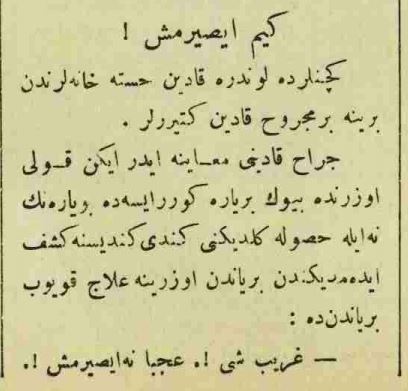 كیم ایصیرمش !
كچنلرده لوندره قادین خسته خانه‌لرندن
برینه بر مجروح قادین كتیررلر .
جراح قادینی معاینه ایدر ایكن قولی
اوزرنده بیوك بریاره كوررایسه‌ده بویاره‌نك
نه‌ایله حصوله كلدیكنی كندی كندیسنه كشف
ایده‌مدیكندن بریاندن اوزرینه علاج قویوب
بریاندن‌ده :
— غریب شی !. عجبا نه‌ایصیرمش !.